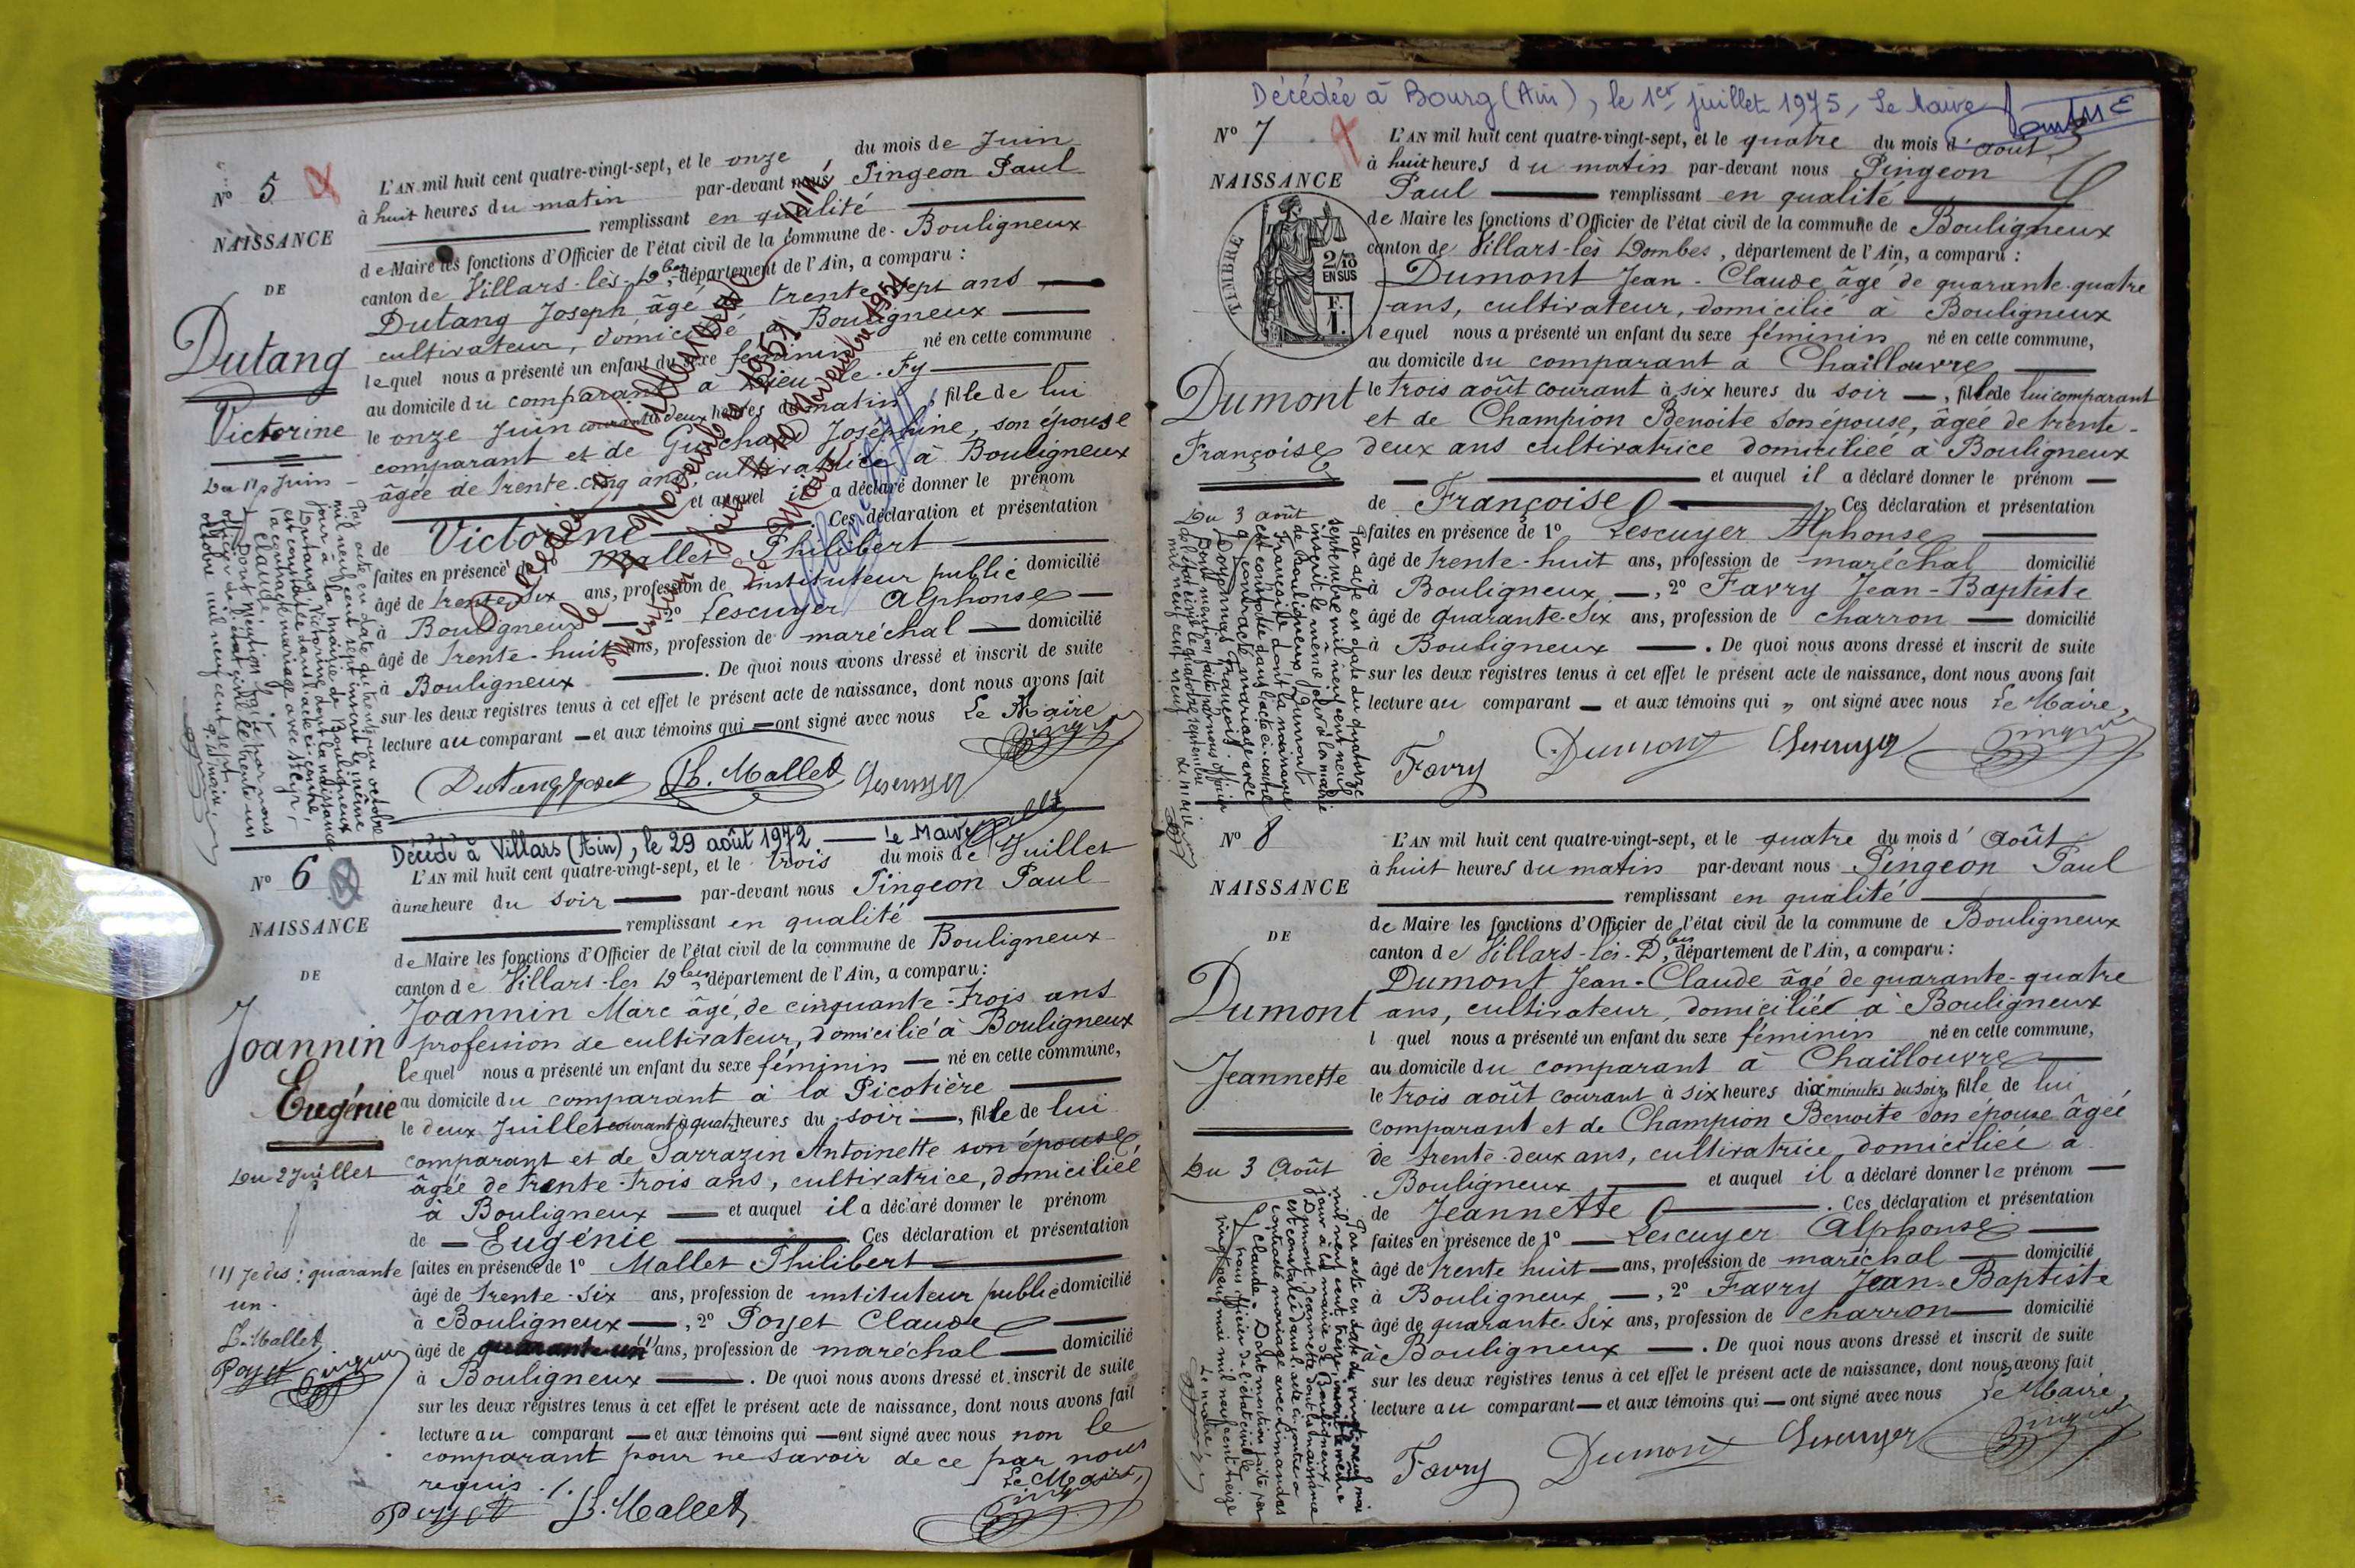 N° 5
NAISSANCE
DE
Dutang
Victorine
Du 11 Juin
L'AN mil huit cent quatre-vingt-sept, et le onze du mois de Juin
à huit heures du matin par-devant nous Pingeon Paul
remplissant en qualité
de Maire les fonctions d'Officier de l'état civil de la commune de Bouligneux
canton de Villars-lès-Dbes, département de l'Ain, a comparu :
Dutang Joseph âgé de trente sept ans
cultivateur, domicilié à Bouligneux
lequel nous a présenté un enfant du sexe féminin né en cette commune
au domicile du comparant à
le onze Juin courant à deux heures du matin, fille de lui
comparant et de Guichard Joséphine, son épouse
âgée de trente-cinq ans, cultivatrice à Bouligneux
et auquel il a déclaré donner le prénom
de Victorine . Ces déclaration et présentation
faites en présence de 1° Mallet Philibert
âgé de trente six ans, profession de instituteur public domicilié
à Bouligneux 2° Lescuyer Alphonse
âgé de trente-huit ans, profession de maréchal domicilié
à Bouligneux . De quoi nous avons dressé et inscrit de suite
sur les deux registres tenus à cet effet le présent acte de naissance, dont nous avons fait
lecture au comparant et aux témoins qui ont signé avec nous Le Maire
Dutang Joseph Ph. Mallet Lescuyer
Par acte en date du trente un octobre
mil neuf cent sept inscrit le même
jour à la mairie de Bouligneux
Dutang Victorine dont la naissance
est constatée dans l'acte ci-contre,
a contracté mariage avec
Claude.
Dont mention faite par nous
officier de l'état civil le trente un
octobre mil neuf cent sept.
Décédé à Villars (Ain), le 29 août 1972 Le Maire
N° 6
NAISSANCE
DE
Joannin
Eugénie
Du 2 Juillet
(1) Je dis : quarante
un.
P. Mallet
Poyet
L'AN mil huit cent quatre-vingt-sept, et le trois du mois de Juillet
à une heure du soir par-devant nous Pingeon Paul
remplissant en qualité
de Maire les fonctions d'Officier de l'état civil de la commune de Bouligneux
canton de Villars-les Dbes département de l'Ain, a comparu :
Joannin Marc âgé, de cinquante-trois ans
profession de cultivateur, domicilié à Bouligneux
lequel nous a présenté un enfant du sexe féminin né en cette commune,
au domicile du comparant à la Picotière
le deux Juillet courant à quatre heures du soir , fille de lui
comparant et de Sarrazin Antoinette son épouse,
âgée de trente-trois ans, cultivatrice, domiciliée
à Bouligneux et auquel il a déclaré donner le prénom
de Eugénie Ces déclaration et présentation
faites en présence de 1° Mallet Philibert
âgé de trente-six ans, profession de instituteur public domicilié
à Bouligneux , 2° Poyet Claude
âgé de quarante-un (1) ans, profession de maréchal domicilié
à Bouligneux . De quoi nous avons dressé et inscrit de suite
sur les deux registres tenus à cet effet le présent acte de naissance, dont nous avons fait
lecture au comparant et aux témoins qui ont signé avec nous non le
comparant pour ne savoir de ce par nous
requis ./. Le Maire,
Poyet P. Mallet
Décédée à Bourg (Ain), le 1er juillet 1975, Le Maire
N° 7
NAISSANCE
TIMBRE
2/10
EN SUS
F.
1.
Dumont
Françoise
Du 3 août
L'AN mil huit cent quatre-vingt-sept, et le quatre du mois d'août
à huit heures du matin par-devant nous Pingeon
Paul remplissant en qualité
de Maire les fonctions d'Officier de l'état civil de la commune de Bouligneux
canton de Villars-lès Dombes, département de l'Ain, a comparu :
Dumont Jean-Claude âgé de quarante-quatre
ans, cultivateur, domicilié à Bouligneux
lequel nous a présenté un enfant du sexe féminin né en cette commune,
au domicile du comparant à Chaillouvre
le trois août courant à six heures du soir , fille de lui comparant
et de Champion Benoite son épouse, âgée de trente-
deux ans cultivatrice domiciliée à Bouligneux
et auquel il a déclaré donner le prénom
de Françoise . Ces déclaration et présentation
faites en présence de 1° Lescuyer Alphonse
âgé de trente-huit ans, profession de maréchal domicilié
à Bouligneux , 2° Favry Jean-Baptiste
âgé de quarante-six ans, profession de charron domicilié
à Bouligneux . De quoi nous avons dressé et inscrit de suite
sur les deux registres tenus à cet effet le présent acte de naissance, dont nous avons fait
lecture au comparant et aux témoins qui „ ont signé avec nous Le Maire,
Favry Dumont Lescuyer
Par acte en date du quatorze
septembre mil neuf cent neuf
inscrit le même jour à la mairie
de Bouligneux Dumont
Françoise dont la naissance
est constatée dans l'acte ci-contre
a contracté mariage avec
François.
Dont mention faite par nous officier
de l'état civil le quatorze septembre
mil neuf cent neuf
N° 8
NAISSANCE
DE
Dumont
Jeannette
Du 3 Août
L'AN mil huit cent quatre-vingt-sept, et le quatre du mois d'Août
à huit heures du matin par-devant nous Pingeon Paul
remplissant en qualité
de Maire les fonctions d'Officier de l'état civil de la commune de Bouligneux
canton de Villars-lès-Dbes, département de l'Ain, a comparu :
Dumont Jean-Claude âgé de quarante-quatre
ans, cultivateur, domiciliée à Bouligneux
l quel nous a présenté un enfant du sexe féminin né en cette commune,
au domicile du comparant à Chaillouvre
le trois août courant à six heures dix minutes du soir, fille de lui
comparant et de Champion Benoite son épouse âgée
de trente-deux ans, cultivatrice, domiciliée à
Bouligneux et auquel il a déclaré donner le prénom
de Jeannette . Ces déclaration et présentation
faites en présence de 1° Lescuyer Alphonse
âgé de trente huit ans, profession de maréchal domicilié
à Bouligneux , 2° Favry Jean-Baptiste
âgé de quarante-six ans, profession de charron domicilié
à Bouligneux . De quoi nous avons dressé et inscrit de suite
sur les deux registres tenus à cet effet le présent acte de naissance, dont nous avons fait
lecture au comparant et aux témoins qui ont signé avec nous Le Maire,
Favry Dumont Lescuyer
Par acte en date du vingt-neuf mai
mil neuf cent treize, inscrit le même
jour à la mairie de Bouligneux,
Dumont Jeannette dont la naissance
est constatée dans l'acte ci-contre a
contracté mariage avec Limandas
Claude. Dont mention faite par
nous officier de l'état civil le
vingt neuf mai mil neuf cent treize
Le maire